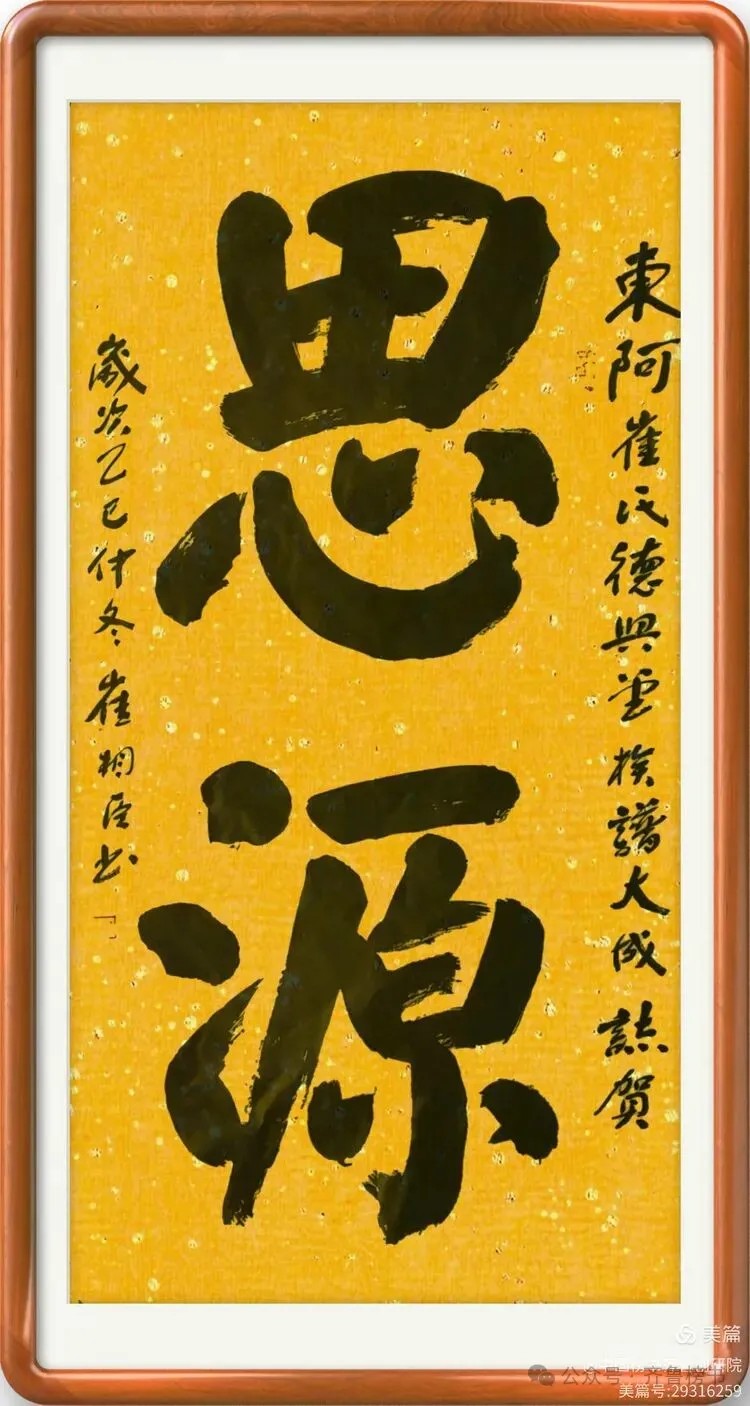 東阿崔氏德興堂族譜大成 誌賀
思源
歲次乙巳仲冬崔相臣书
美篇
公众号·齐鲁榜书
研院
美篇号:29316259